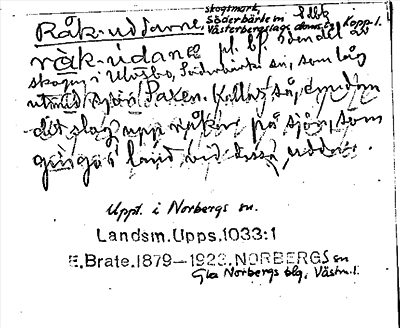 skogsmark,
Råk-uddarne Söderbärke sn
Västerbergslags doms. Kopp. l.
råk-udane pl. bf. en del av
skogen i Ulvsbo, Söderbärke sn, som låg
utmed sjön Saxen. Kallas så, emedan
det slag upp råkar på sjön, som
gingo i land vid dessa uddar.
Uppt. i Norbergs sn.
Landsm.Upps.1033:1
E.Brate.1879—1923.NORBERGS sn
Gla Norbergs blg, Västm. l.